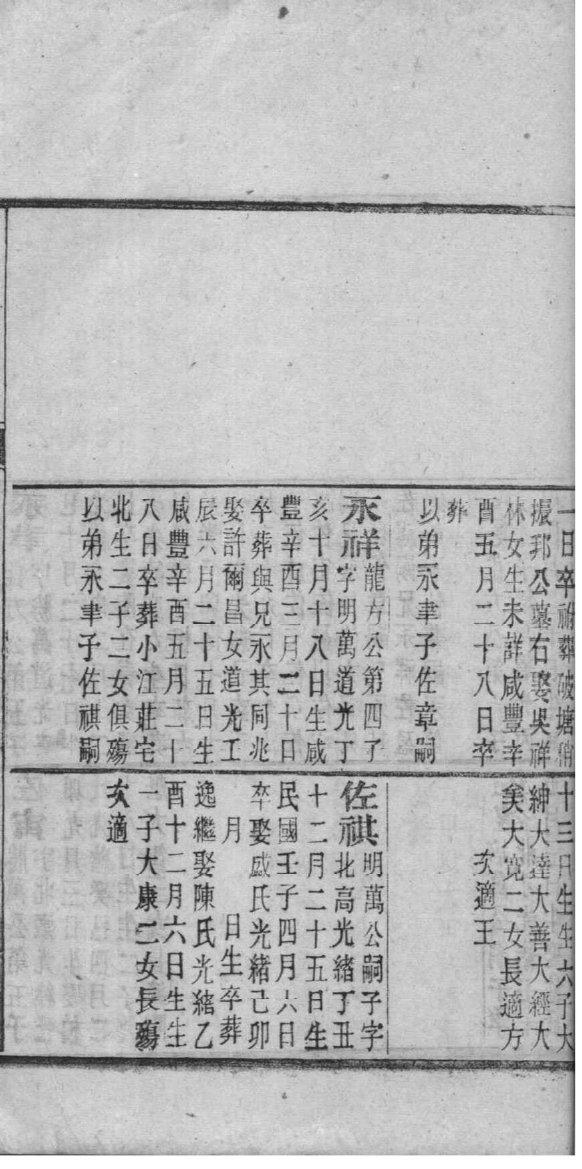 一日卒祔葬破塘稍
振邦公墓右娶吳祥
林女生未詳咸豐辛
酉五月二十八日卒
葬
以弟永聿子佐章嗣
永祥字明萬道光丁
龍方公第四子
亥十月十八日生咸
豐辛酉三月二十日
卒葬與兄永其同兆
娶許爾昌女道光壬
辰六月二十五日生
咸豐辛酉五月二十
八日卒葬小江莊宅
北生二子二女俱殤
以弟永聿子佐祺嗣
十三日生生六子大
紳大逵大善大經大
矣大寬二女長適方
次適王
佐祺明萬公嗣子字
北高光緒丁丑
十二月二十五日生
民國壬子四月六日
卒娶戚氏光緒己卯
月 日生卒葬
逸繼娶陳氏光緒乙
酉十二月六日生生
一子大康二女長殤
次適